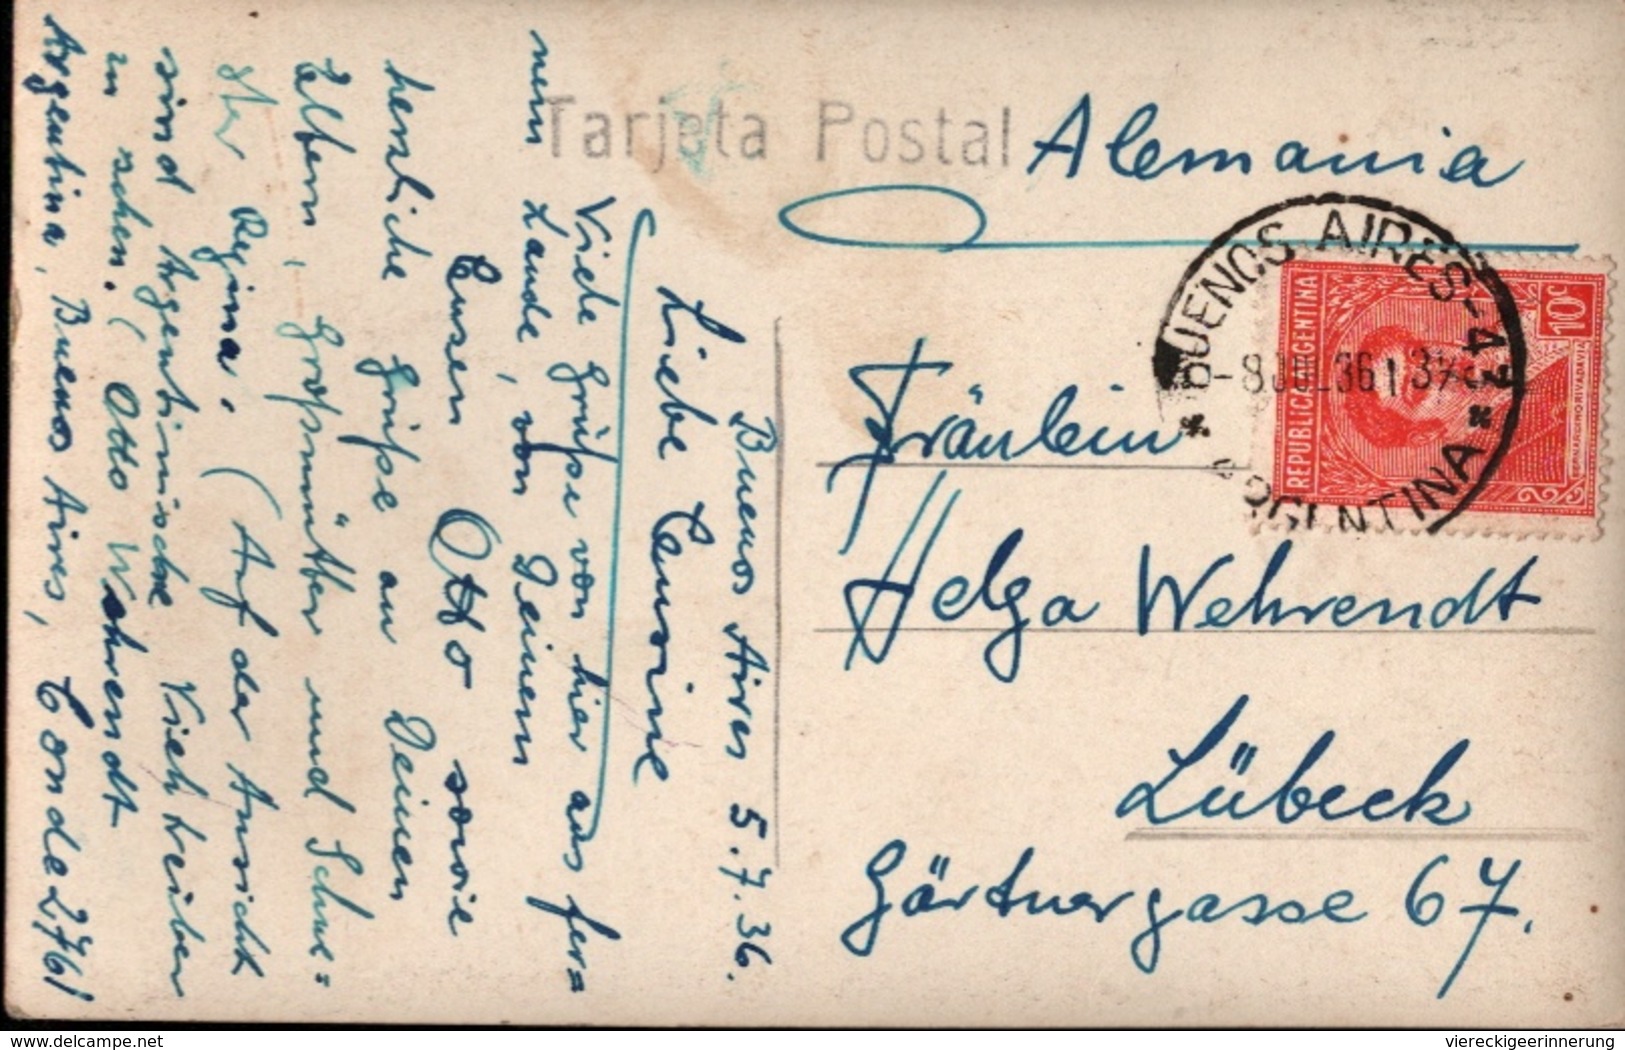 Tarjeta Postal
Alemania
BUENOS AIRES-47
8 JUL 36
ARGENTINA
REPUBLICA ARGENTINA
10c
BERNARDINO RIVADAVIA
Fräulein
Helga Wehrendt
Lübeck
Gärtnergasse 67.
Buenos Aires 5.7.36.
Liebe Cousine
Viele Grüße von hier aus fer=
nem Lande, von Deinem
Cousen Otto sowie
herzliche Grüße an Deinen
Eltern, Großmütter und Schwe=
ster Regina. (Auf der Ansicht
sind Argentinische Viehtreiber
zu sehen.) Otto Wehrendt
Argentina, Buenos Aires, Conde 2761
delcampe.net
viereckigeerinnerung